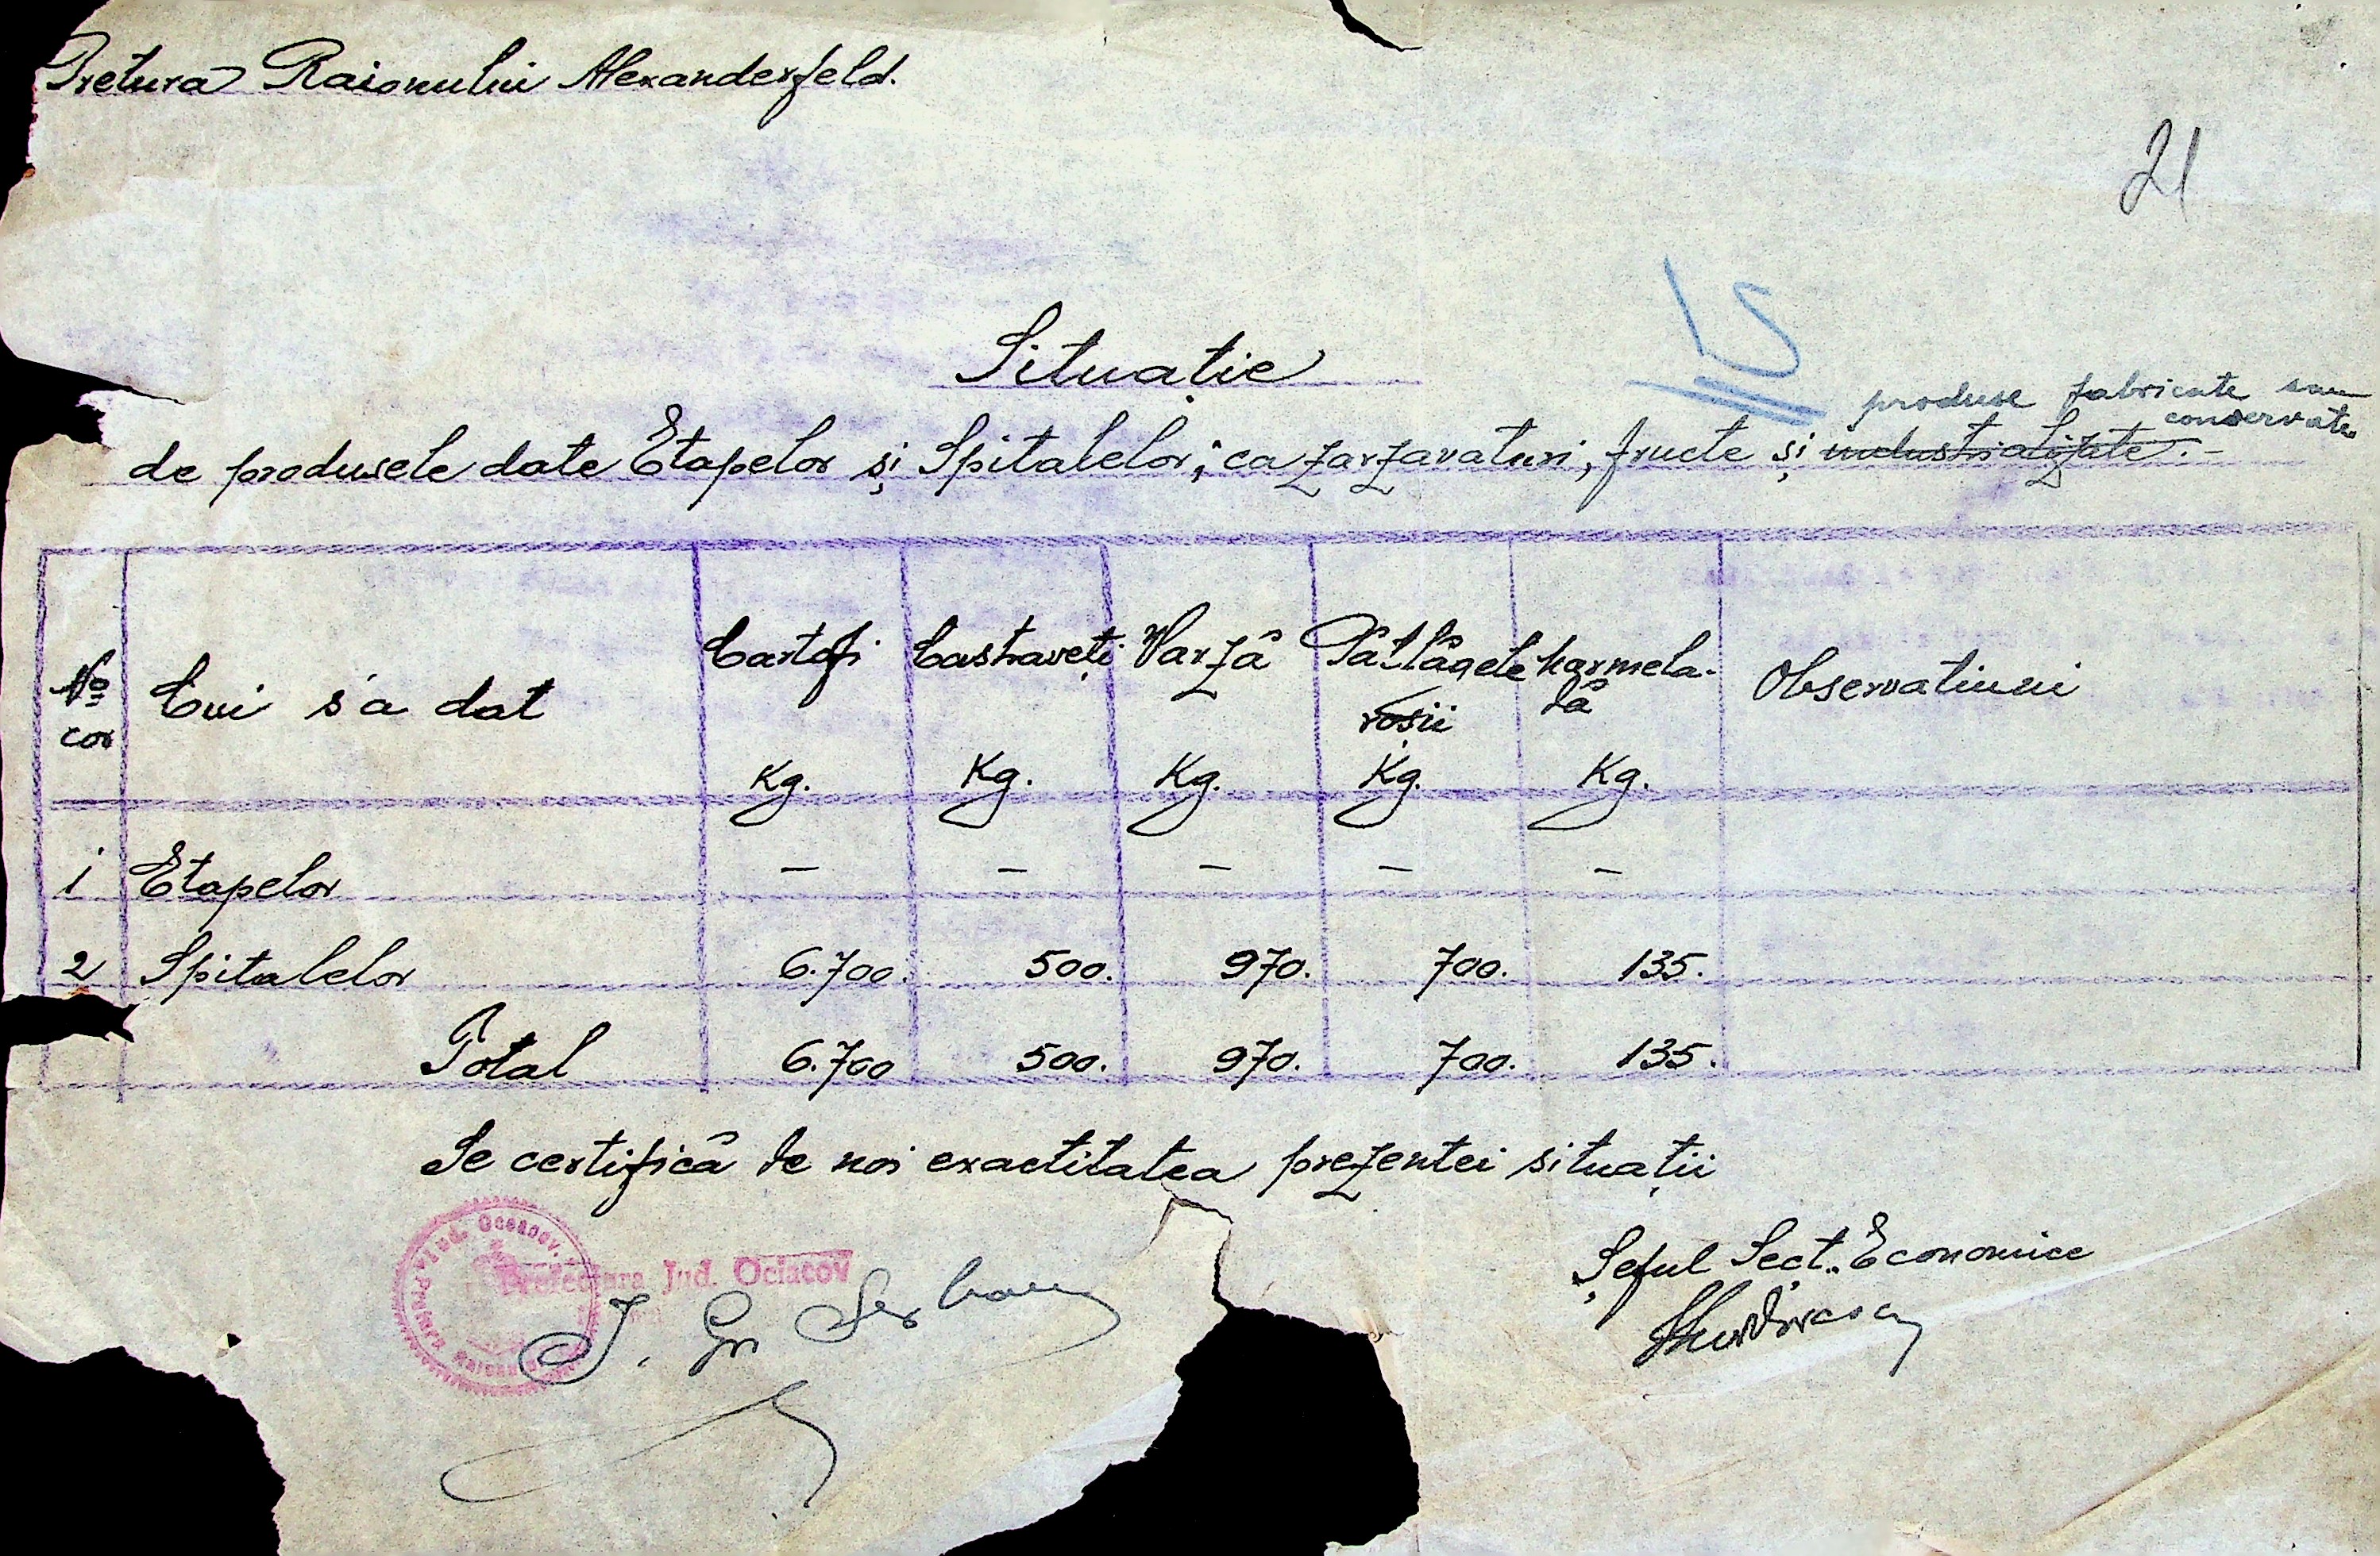 Pretura Raionului Alexanderfeld.
21
Situație
produse fabricate sau
conservate
de produsele date Etapelor și Spitalelor, ca zarzavaturi, fructe și industrializate.-
No cor | Cui s'a dat | Cartofi Kg. | Castraveți Kg. | Varză Kg. | Pătlăgele roșii Kg. | Marmeladă Kg. | Observatiuni
1 | Etapelor | - | - | - | - | -
2 | Spitalelor | 6.700. | 500. | 970. | 700. | 135.
Total | 6.700 | 500. | 970. | 700. | 135.
Se certifică de noi exactitatea prezentei situații
Prefectura Jud. Ociacov
Șeful Sect. Economice
I. Gr Serban